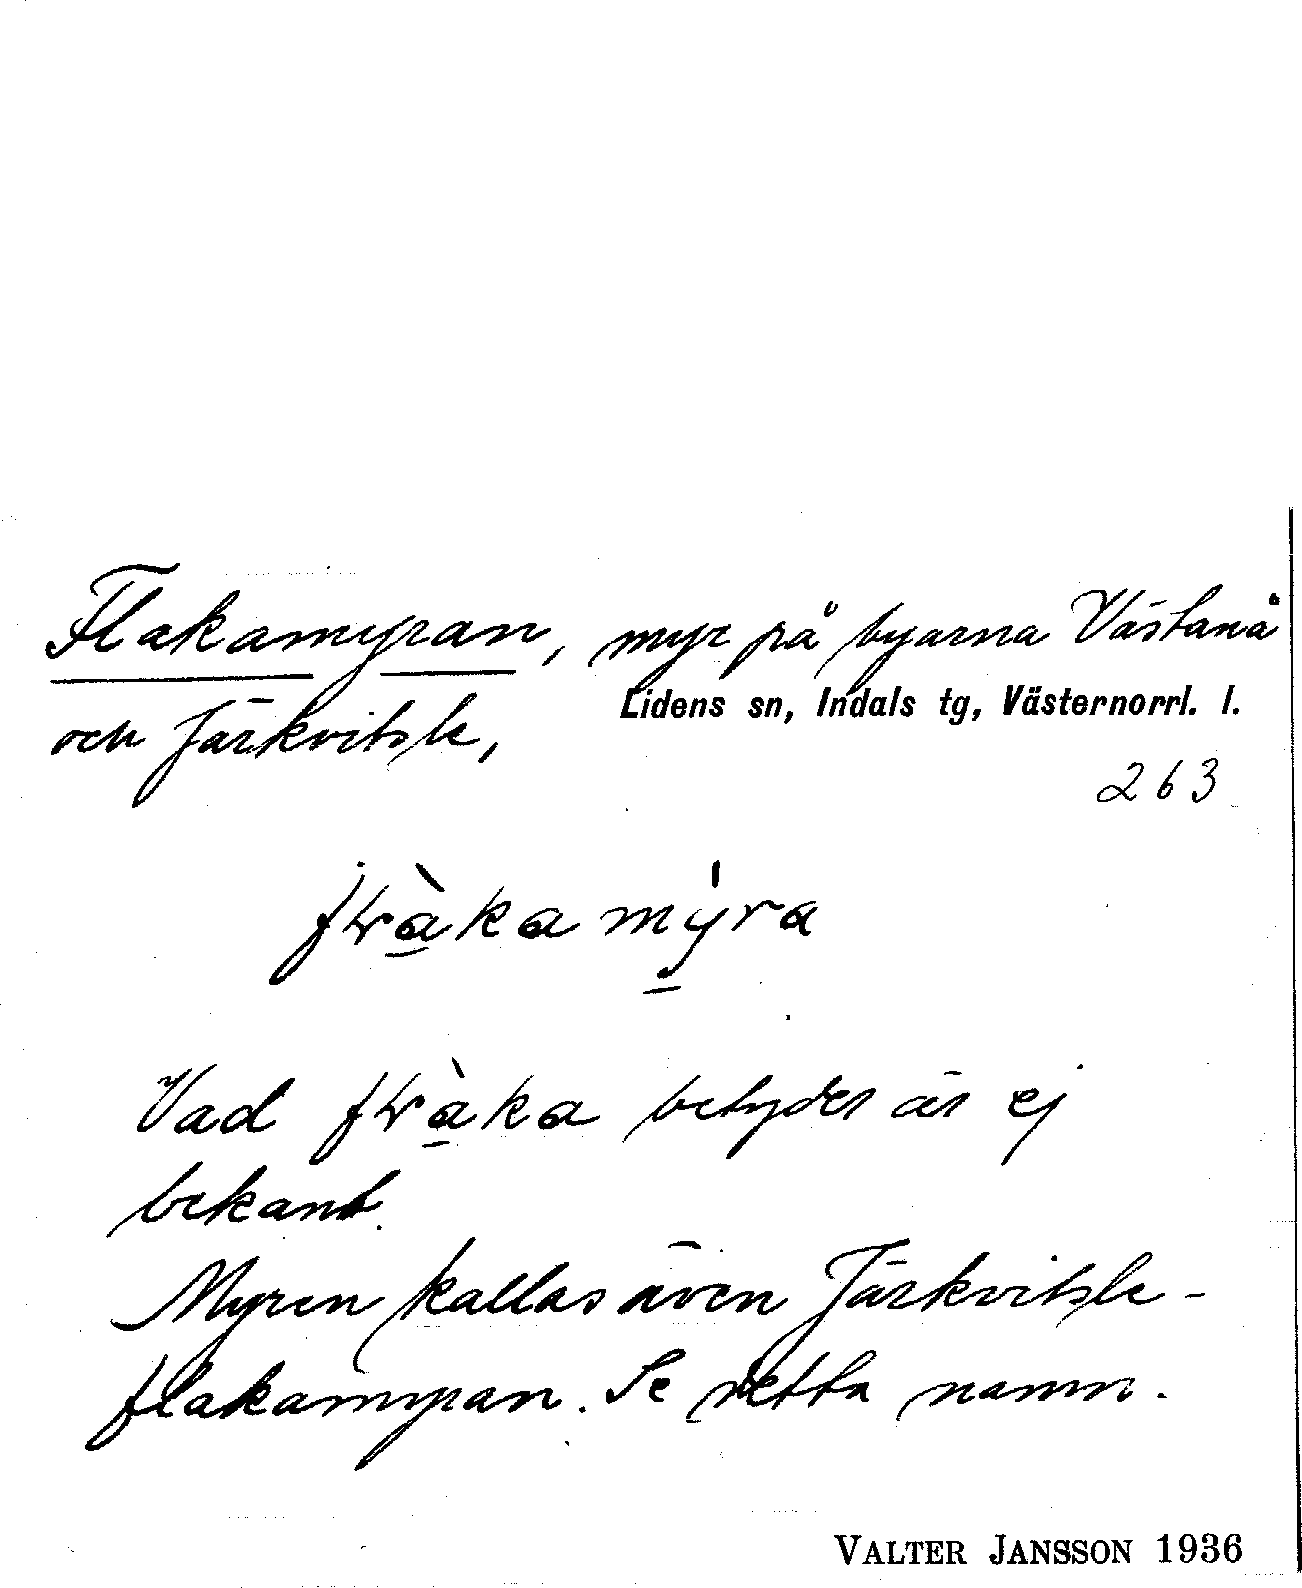 Flakamyran, myr på byarna Västanå
Lidens sn, Indals tg, Västernorrl. l.
och Järkvitsle,
263
Vad betyder är ej
bekant.
Myren kallas även Järkvitsle-
flakamyran. Se detta namn.
VALTER JANSSON 1936